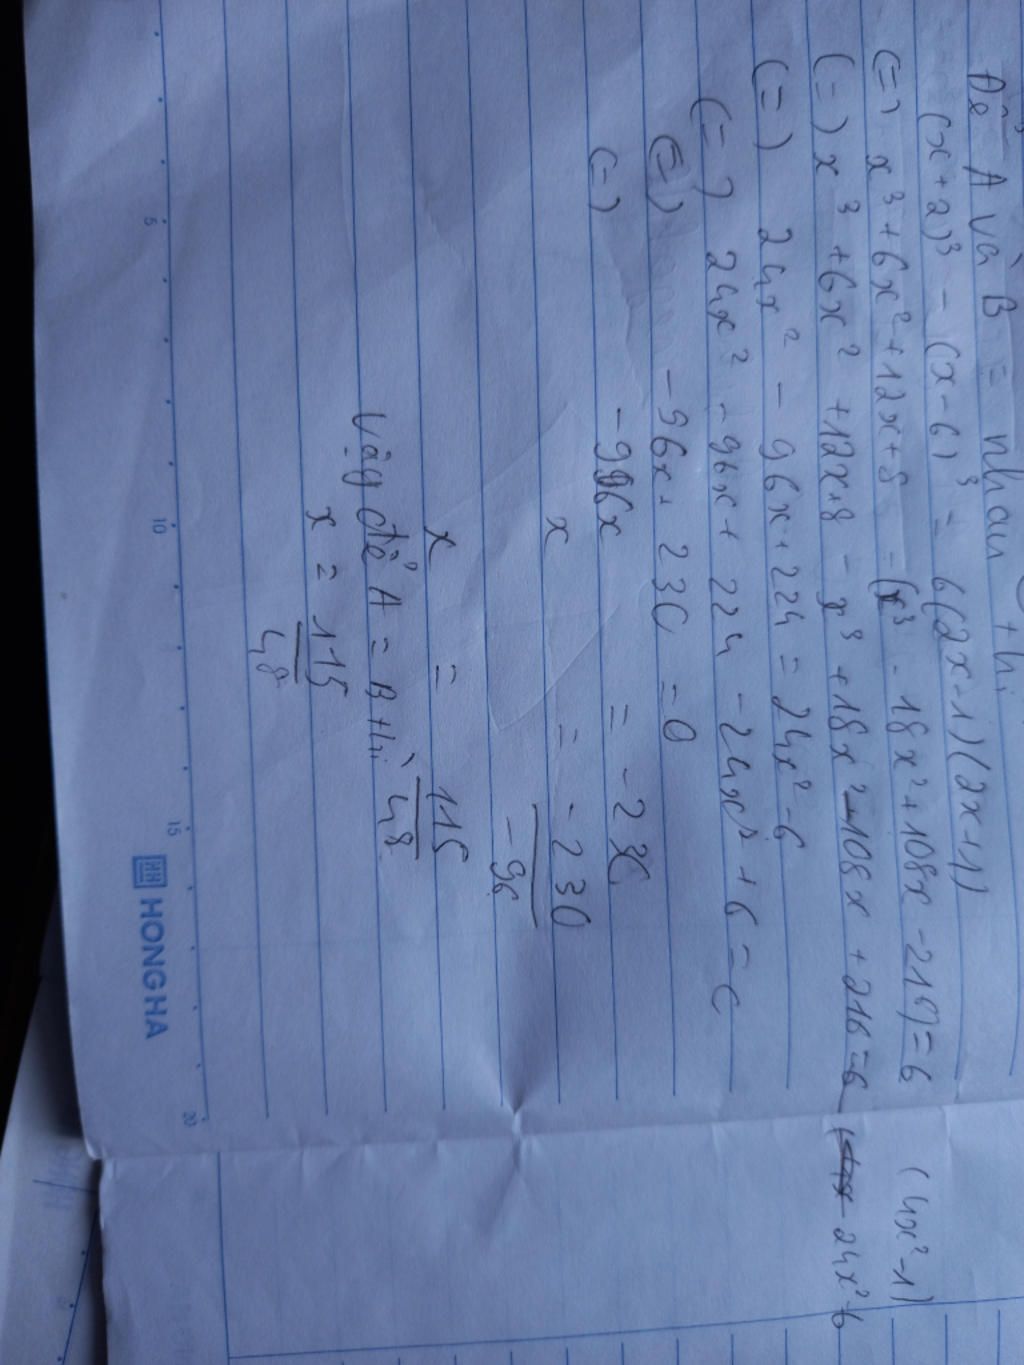 Để A và B = nhau thì
(x+2)³ - (x-6)³ = 6(2x-1)(2x+1)
(=) x³+6x²+12x+8 - (x³ - 18x²+108x-216)=6 (4x²-1)
(=) x³+6x²+12x+8 - x³+18x²-108x+216=24x²-6
(=) 24x² - 96x+224 = 24x²-6
(=) 24x²-96x+224-24x²+6=0
(=) -96x+230=0
(=) -96x = -230
x = -230
-96
x = 115
48
Vậy để A = B thì
x = 115
48
5
10
15
20
HH HONGHA